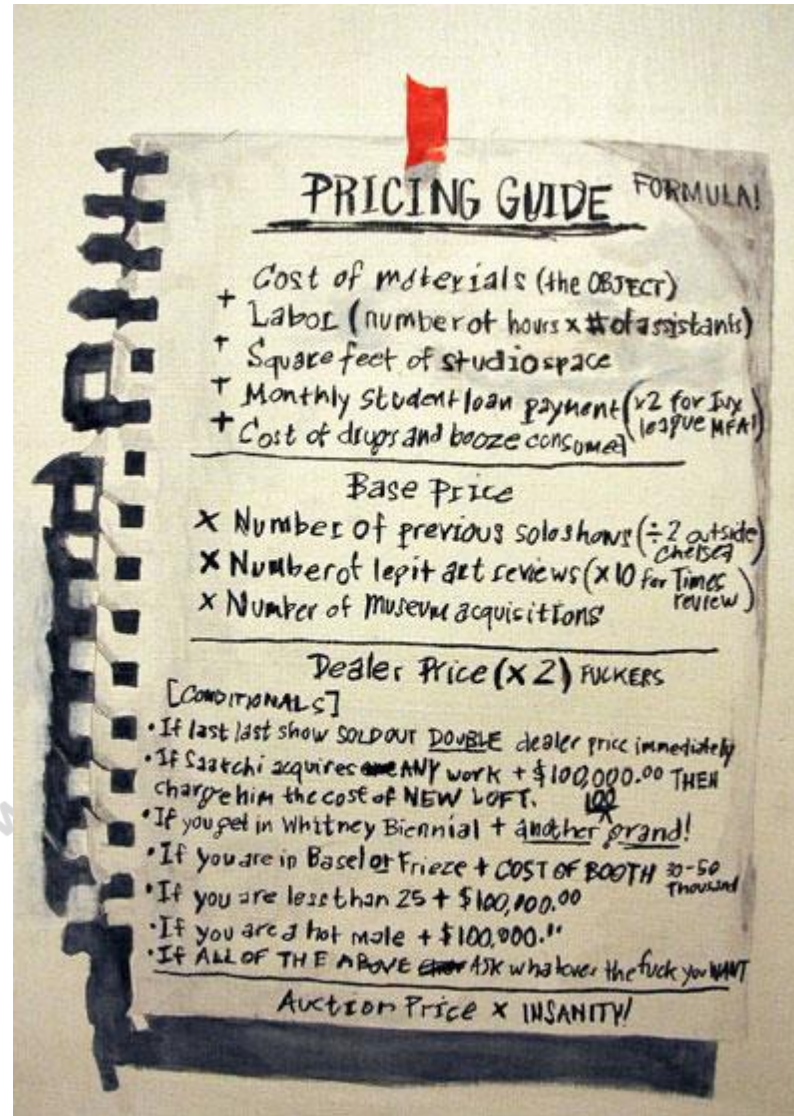 PRICING GUIDE FORMULA!
Cost of materials (the OBJECT)
+ Labor (number of hours x # of assistants)
+ Square feet of studio space
+ Monthly student loan payment (x2 for Ivy league MFA!)
+ Cost of drugs and booze consumed
Base Price
X Number of previous solo shows (÷2 outside Chelsea)
X Number of legit art reviews (X10 for Times review)
X Number of Museum acquisitions
Dealer Price (X 2) FUCKERS
[CONDITIONALS]
• If last last show SOLD OUT DOUBLE dealer price immediately
• If Saatchi acquires ANY work + $100,000.00 THEN
charge him the cost of NEW LOFT.
• If you get in Whitney Biennial + another 100 grand!
• If you are in Basel or Frieze + COST OF BOOTH 30-50 Thousand
• If you are less than 25 + $100,000.00
• If you are a hot male + $100,000.00
• If ALL OF THE ABOVE ASK whatever the fuck you WANT
Auction Price X INSANITY!